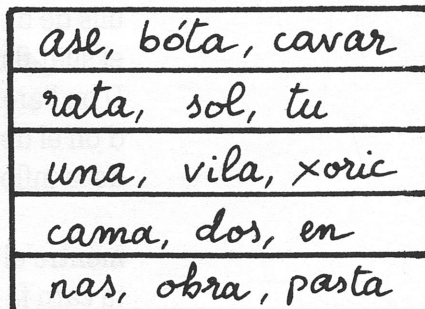 ase, bóta, cavar
rata, sol, tu
una, vila, xoric
cama, dos, en
nas, obra, pasta